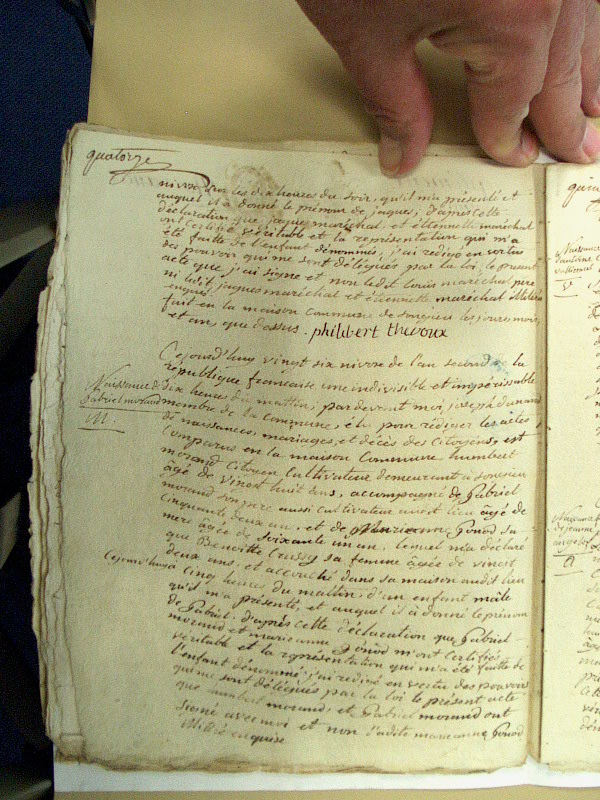 quatorze
nivose sur les dix heures du soir, qu'il m'a présenté et
auquel il a donné le prénom de jaques, d'après cette
déclaration que jaques maréchal, et étiennette maréchal
ont certifié véritable et la representation qui m'a
été faitte de l'enfant dénommés, j'ai redigé en vertus
des pouvoir qui me sont délégués par la loi, le présent
acte que j'ai signé et non ledit Louis maréchal pere
ni ledit jaques maréchal et étiennette maréchal illitérés
enquis
fait en la maison Commune de les jours, mois,
et an, que dessus. philibert thevoux
Cejourd'huy vingt six nivose de l'an second de la
république francaise une indivisible et impérissable
Naissance de
Gabriel morand
m.
Six heures du mattin, pardevant moi, joseph durand
membre de la Commune, élu pour rédiger les actes
de naissances, mariages, et décès des Citoyens, est
Comparus en la maison Commune humbert
morand Citoyen Cultivateur demeurant à
âgé de vingt huit ans, accompagné de Gabriel
morand son pere aussi Cultivateur audit lieu âgé de
Cinquante deux an, et de Marianne Gonod sa
mere âgée de soixante un an, lequel m'a déclaré
que Benoitte Crussy sa femme âgée de vingt
deux ans, et accouché dans sa maison audit lieu
Cejourd'huy
à Cinq heures du mattin, d'un enfant mâle
qu'il m'a présenté, et auquel il à donné le prénom
de Gabriel. d'après cette déclaration que Gabriel
morand et marieanne Gonod m'ont Certifié
véritable et la représentation qui m'a été faitte de
l'enfant dénommé, j'ai redigé en vertu des pouvoirs
qui me sont délégués par la loi le présent acte
que humbert morand, et Gabriel morand ont
Signé avec moi et non ladite marieanne Gonod
illitéré enquise